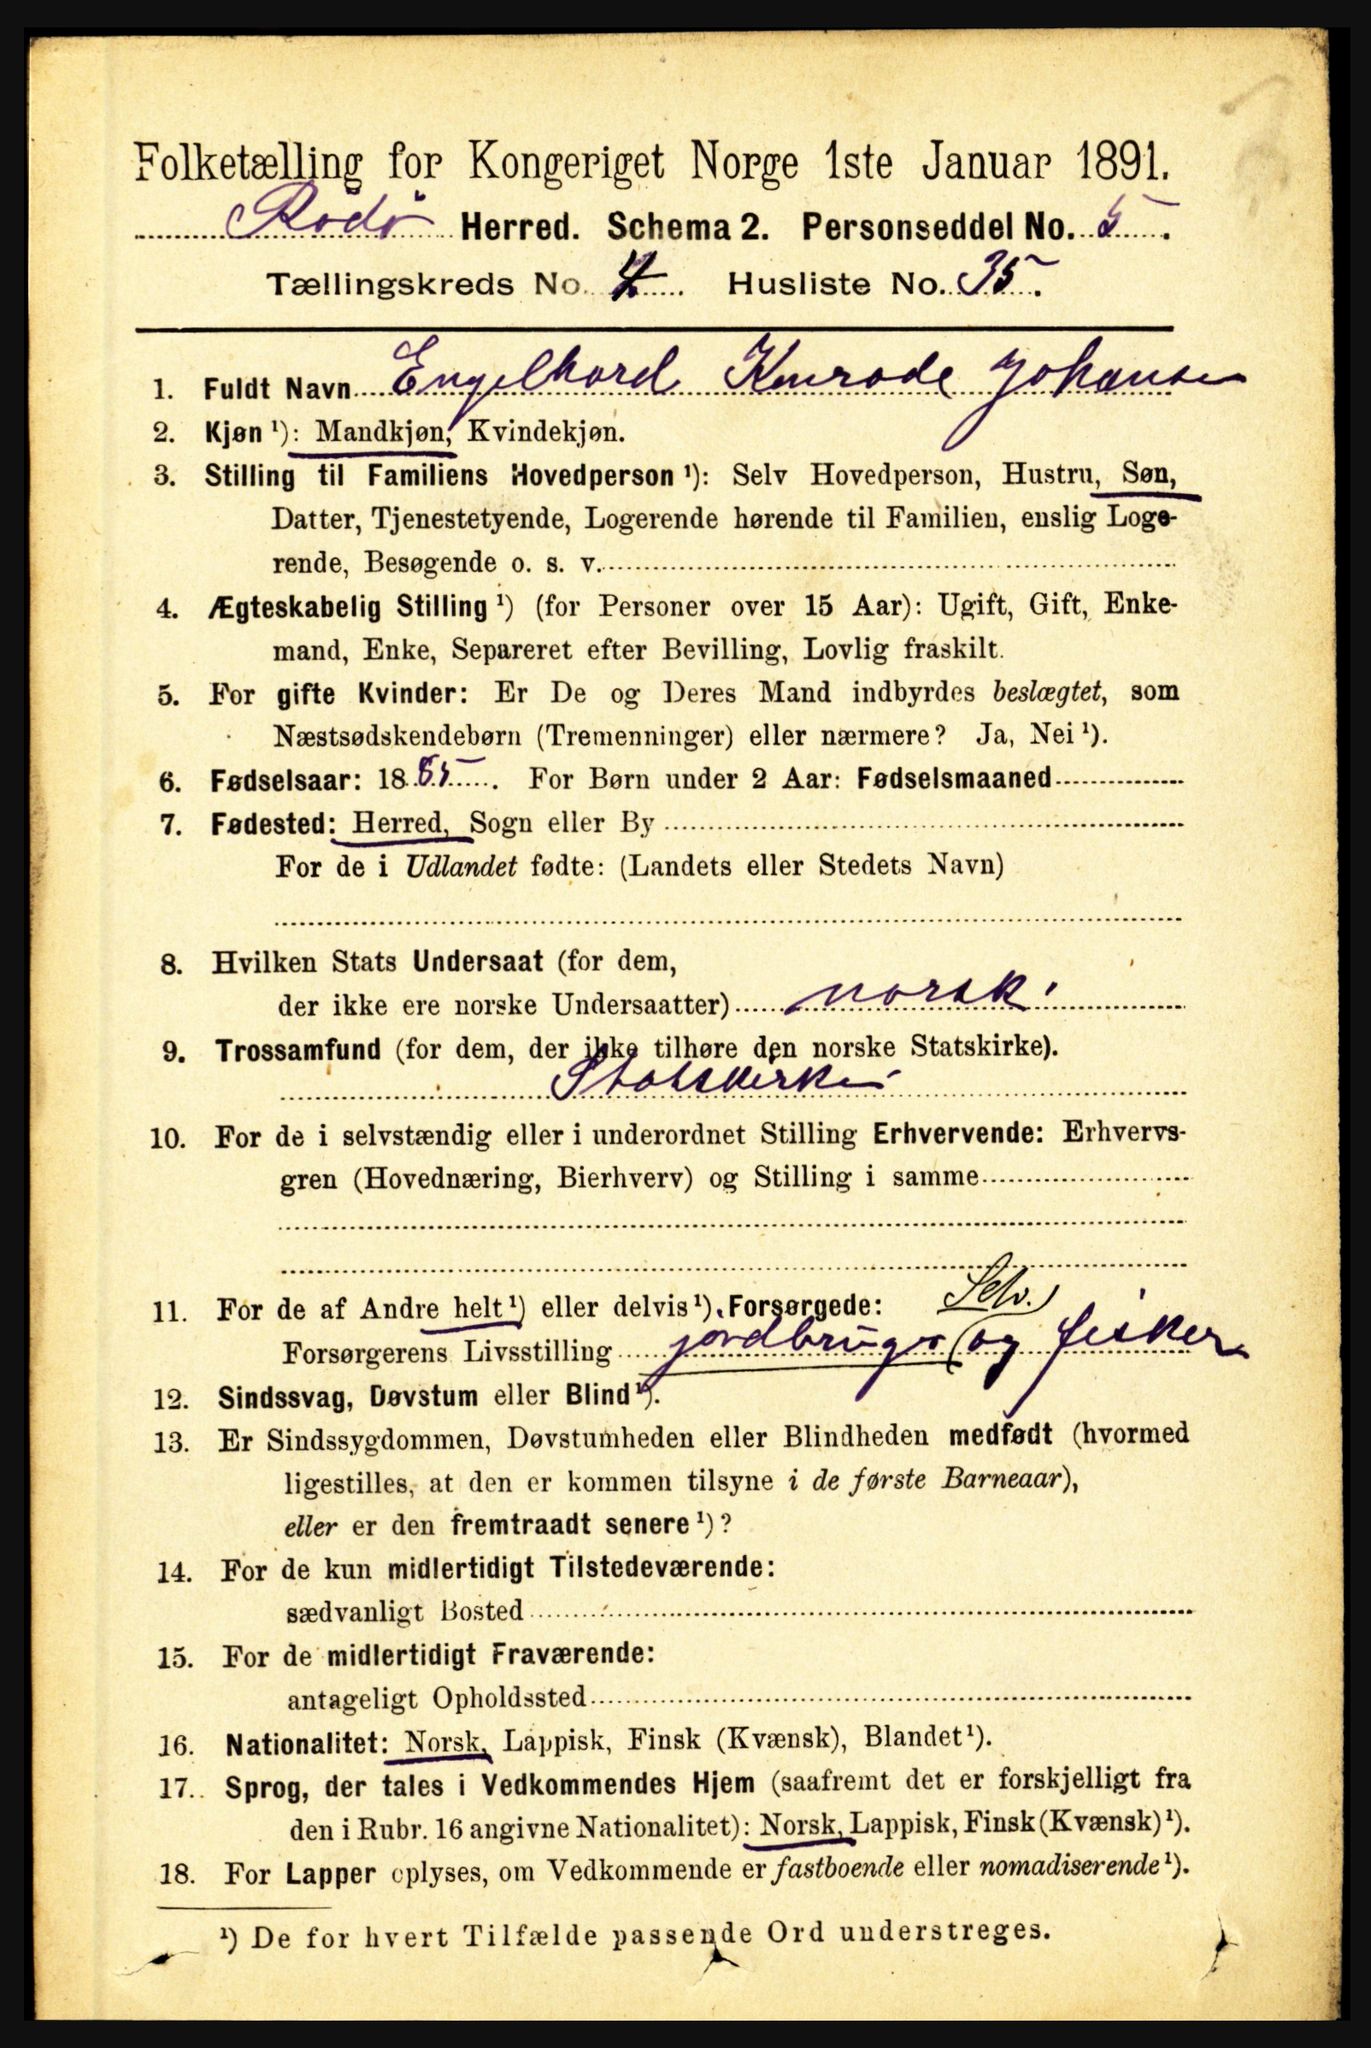 Folketælling for Kongeriget Norge 1ste Januar 1891.
Rödö Herred. Schema 2. Personseddel No. 5.
Tællingskreds No. 4. Husliste No. 35.
1. Fuldt Navn Engelhard Konrade Johansen
2. Kjøn ¹): Mandkjøn, Kvindekjøn.
3. Stilling til Familiens Hovedperson ¹): Selv Hovedperson, Hustru, Søn,
Datter, Tjenestetyende, Logerende hørende til Familien, enslig Loge-
rende, Besøgende o. s. v.
4. Ægteskabelig Stilling ¹) (for Personer over 15 Aar): Ugift, Gift, Enke-
mand, Enke, Separeret efter Bevilling, Lovlig fraskilt.
5. For gifte Kvinder: Er De og Deres Mand indbyrdes beslægtet, som
Næstsødskendebørn (Tremenninger) eller nærmere? Ja, Nei ¹).
6. Fødselsaar: 1885. For Børn under 2 Aar: Fødselsmaaned
7. Fødested: Herred, Sogn eller By
For de i Udlandet fødte: (Landets eller Stedets Navn)
8. Hvilken Stats Undersaat (for dem,
der ikke ere norske Undersaatter) norsk.
9. Trossamfund (for dem, der ikke tilhøre den norske Statskirke).
Statskirken
10. For de i selvstændig eller i underordnet Stilling Erhvervende: Erhvervs-
gren (Hovednæring, Bierhverv) og Stilling i samme
11. For de af Andre helt ¹) eller delvis ¹) Forsørgede: Selv.
Forsørgerens Livsstilling jordbruger og fisker
12. Sindssvag, Døvstum eller Blind ¹).
13. Er Sindssygdommen, Døvstumheden eller Blindheden medfødt (hvormed
ligestilles, at den er kommen tilsyne i de første Barneaar),
eller er den fremtraadt senere ¹)?
14. For de kun midlertidigt Tilstedeværende:
sædvanligt Bosted
15. For de midlertidigt Fraværende:
antageligt Opholdssted
16. Nationalitet: Norsk, Lappisk, Finsk (Kvænsk), Blandet ¹).
17. Sprog, der tales i Vedkommendes Hjem (saafremt det er forskjelligt fra
den i Rubr. 16 angivne Nationalitet): Norsk, Lappisk, Finsk (Kvænsk) ¹).
18. For Lapper oplyses, om Vedkommende er fastboende eller nomadiserende ¹).
¹) De for hvert Tilfælde passende Ord understreges.